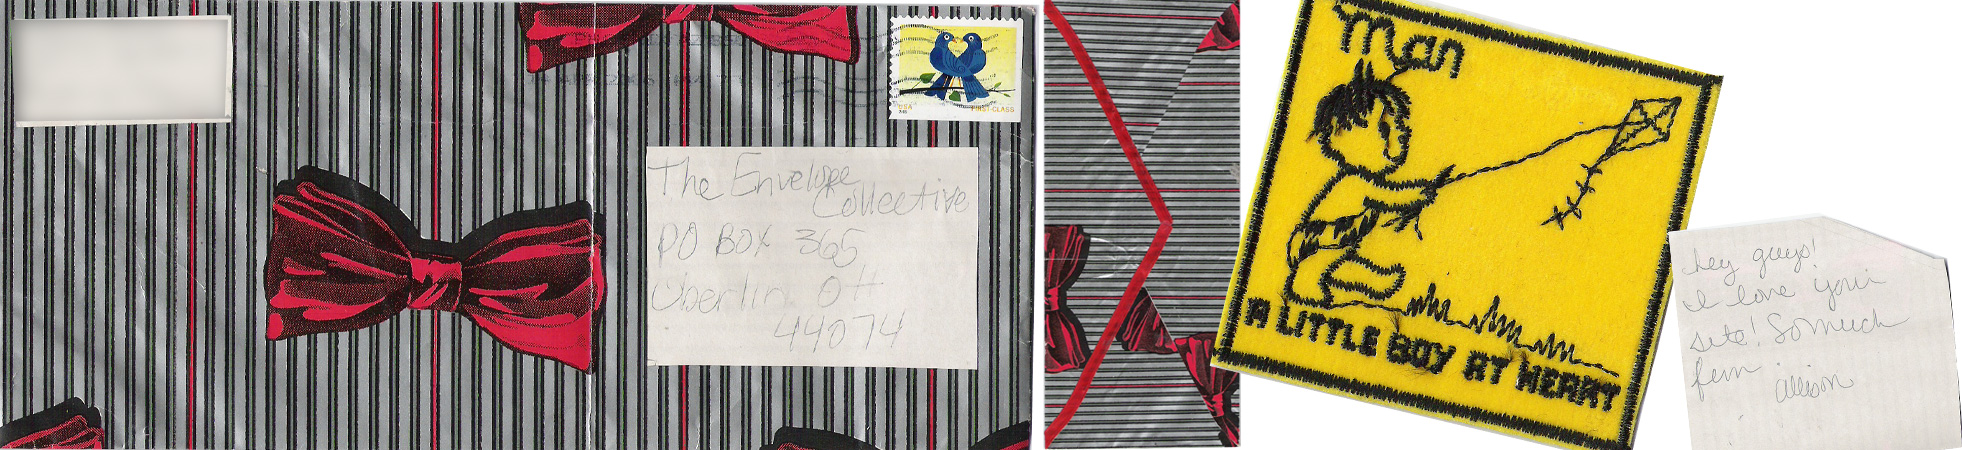 USA
FIRST-CLASS
The Envelope
Collective
PO BOX 365
Oberlin OH
44074
Man
A LITTLE BOY AT HEART
hey guys!
I love your
site! So much
fun
allison